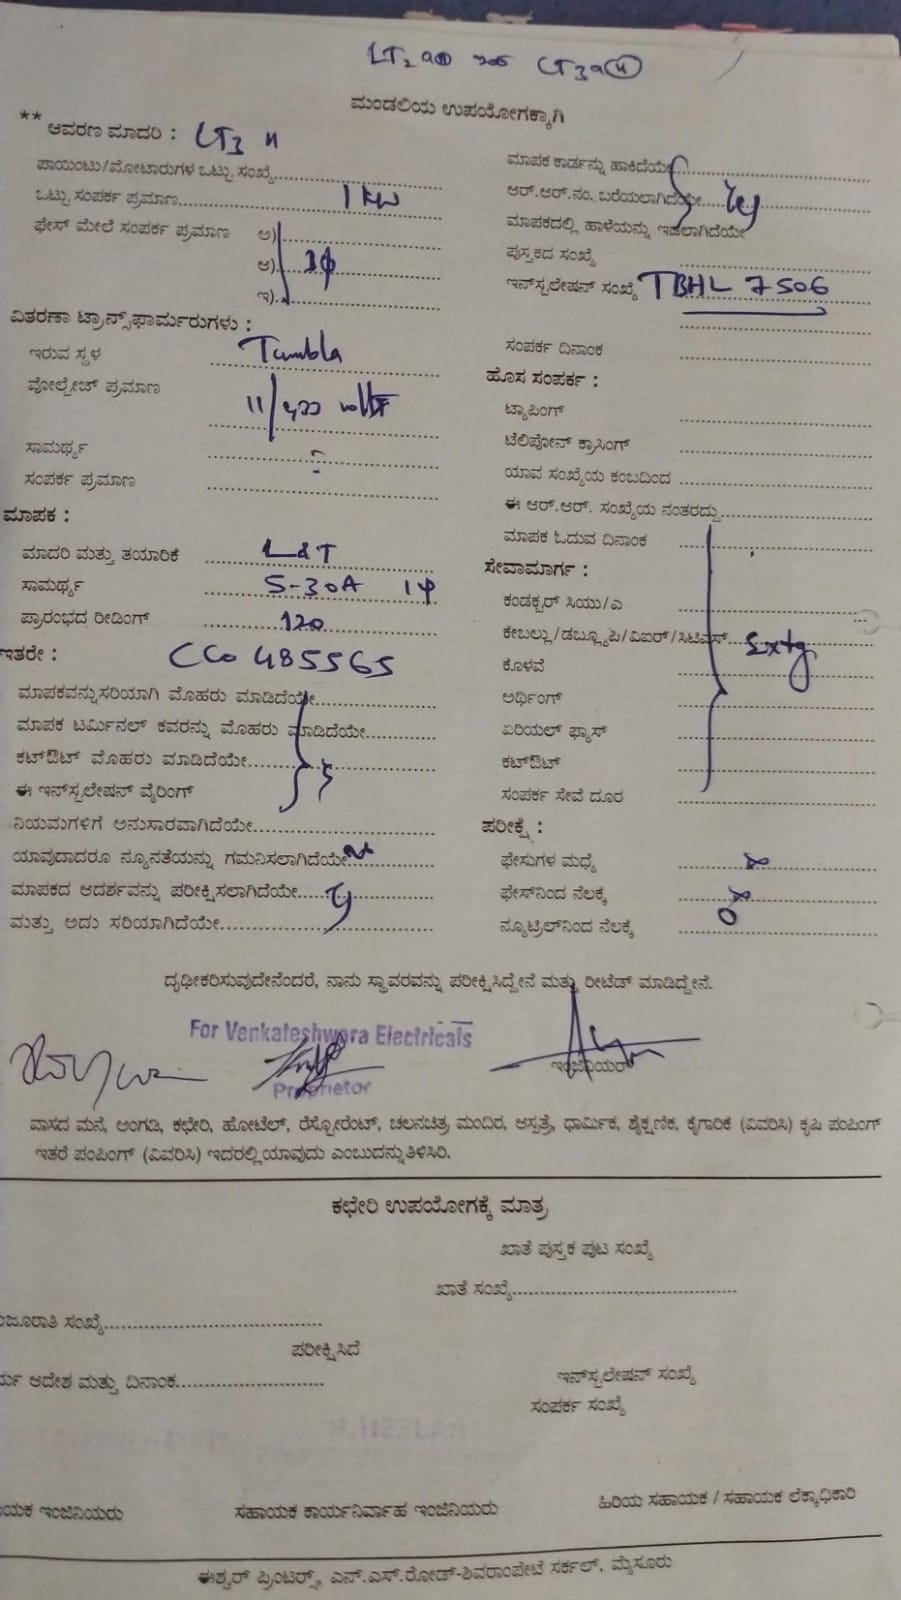 LT2 a① ನಿಂದ LT3 a④
ಮಂಡಲಿಯ ಉಪಯೋಗಕ್ಕಾಗಿ
** ಆವರಣ ಮಾದರಿ : LT3
ಪಾಯಿಂಟು/ಮೋಟಾರುಗಳ ಒಟ್ಟು ಸಂಖ್ಯೆ
ಒಟ್ಟು ಸಂಪರ್ಕ ಪ್ರಮಾಣ 1 KW
ಫೇಸ್ ಮೇಲೆ ಸಂಪರ್ಕ ಪ್ರಮಾಣ ಅ)
ಆ) 1φ
ಇ)
ವಿತರಣಾ ಟ್ರಾನ್ಸ್‌ಫಾರ್ಮರುಗಳು :
ಇರುವ ಸ್ಥಳ Tumbla
ವೋಲ್ಟೇಜ್ ಪ್ರಮಾಣ 11/400 volts
ಸಾಮರ್ಥ್ಯ
ಸಂಪರ್ಕ ಪ್ರಮಾಣ
ಮಾಪಕ :
ಮಾದರಿ ಮತ್ತು ತಯಾರಿಕೆ L&T
ಸಾಮರ್ಥ್ಯ 5-30A 1φ
ಪ್ರಾರಂಭದ ರೀಡಿಂಗ್ 120
ಇತರೇ : CCo 485565
ಮಾಪಕವನ್ನು ಸರಿಯಾಗಿ ಮೊಹರು ಮಾಡಿದೆಯೇ
ಮಾಪಕ ಟರ್ಮಿನಲ್ ಕವರನ್ನು ಮೊಹರು ಮಾಡಿದೆಯೇ
ಕಟ್‌ಔಟ್ ಮೊಹರು ಮಾಡಿದೆಯೇ
ಈ ಇನ್‌ಸ್ಟಲೇಷನ್ ವೈರಿಂಗ್
ನಿಯಮಗಳಿಗೆ ಅನುಸಾರವಾಗಿದೆಯೇ
ಯಾವುದಾದರೂ ನ್ಯೂನತೆಯನ್ನು ಗಮನಿಸಲಾಗಿದೆಯೇ
ಮಾಪಕದ ಆದರ್ಶವನ್ನು ಪರೀಕ್ಷಿಸಲಾಗಿದೆಯೇ
ಮತ್ತು ಅದು ಸರಿಯಾಗಿದೆಯೇ
ಮಾಪಕ ಕಾರ್ಡನ್ನು ಹಾಕಿದೆಯೇ
ಆರ್.ಆರ್.ನಂ. ಬರೆಯಲಾಗಿದೆಯೇ
ಮಾಪಕದಲ್ಲಿ ಹಾಳೆಯನ್ನು ಇಡಲಾಗಿದೆಯೇ
ಪುಸ್ತಕದ ಸಂಖ್ಯೆ
ಇನ್‌ಸ್ಟಲೇಷನ್ ಸಂಖ್ಯೆ TBHL 7506
ಸಂಪರ್ಕ ದಿನಾಂಕ
ಹೊಸ ಸಂಪರ್ಕ :
ಟ್ಯಾಪಿಂಗ್
ಟೆಲಿಪೋನ್ ಕ್ರಾಸಿಂಗ್
ಯಾವ ಸಂಖ್ಯೆಯ ಕಂಬದಿಂದ
ಈ ಆರ್.ಆರ್. ಸಂಖ್ಯೆಯ ನಂತರದ್ದು
ಮಾಪಕ ಓದುವ ದಿನಾಂಕ
ಸೇವಾಮಾರ್ಗ :
ಕಂಡಕ್ಟರ್ ಸಿಯು/ಎ
ಕೇಬಲ್ಲು/ಡಬ್ಲ್ಯೂ ಪಿ/ವಿಐರ್/ಸಿಟಿಎಸ್ Extg
ಕೊಳವೆ
ಅರ್ಥಿಂಗ್
ಏರಿಯಲ್ ಫ್ಯಾಸ್
ಕಟ್‌ಔಟ್
ಸಂಪರ್ಕ ಸೇವೆ ದೂರ
ಪರೀಕ್ಷೆ :
ಫೇಸುಗಳ ಮಧ್ಯೆ ∞
ಫೇಸ್‌ನಿಂದ ನೆಲಕ್ಕೆ ∞
ನ್ಯೂಟ್ರಿಲ್‌ನಿಂದ ನೆಲಕ್ಕೆ 0
ದೃಢೀಕರಿಸುವುದೇನೆಂದರೆ, ನಾನು ಸ್ಥಾವರವನ್ನು ಪರೀಕ್ಷಿಸಿದ್ದೇನೆ ಮತ್ತು ರೀಟೆಡ್ ಮಾಡಿದ್ದೇನೆ.
For Venkateshwara Electricals
Proprietor
ಇಂಜಿನಿಯರ್
ವಾಸದ ಮನೆ, ಅಂಗಡಿ, ಕಛೇರಿ, ಹೋಟೆಲ್, ರೆಸ್ಟೋರೆಂಟ್, ಚಲನಚಿತ್ರ ಮಂದಿರ, ಆಸ್ಪತ್ರೆ, ಧಾರ್ಮಿಕ, ಶೈಕ್ಷಣಿಕ, ಕೈಗಾರಿಕೆ (ವಿವರಿಸಿ) ಕೃಷಿ ಪಂಪಿಂಗ್
ಇತರೆ ಪಂಪಿಂಗ್ (ವಿವರಿಸಿ) ಇದರಲ್ಲಿ ಯಾವುದು ಎಂಬುದನ್ನು ತಿಳಿಸಿರಿ.
ಕಛೇರಿ ಉಪಯೋಗಕ್ಕೆ ಮಾತ್ರ
ಖಾತೆ ಪುಸ್ತಕ ಪುಟ ಸಂಖ್ಯೆ
ಖಾತೆ ಸಂಖ್ಯೆ
ಜೂರಾತಿ ಸಂಖ್ಯೆ
ಪರೀಕ್ಷಿಸಿದೆ
ಆದೇಶ ಮತ್ತು ದಿನಾಂಕ
ಇನ್‌ಸ್ಟಲೇಷನ್ ಸಂಖ್ಯೆ
ಸಂಪರ್ಕ ಸಂಖ್ಯೆ
ಯಕ ಇಂಜಿನಿಯರು ಸಹಾಯಕ ಕಾರ್ಯನಿರ್ವಾಹ ಇಂಜಿನಿಯರು ಹಿರಿಯ ಸಹಾಯಕ / ಸಹಾಯಕ ಲೆಕ್ಕಾಧಿಕಾರಿ
ಈಶ್ವರ್ ಪ್ರಿಂಟರ್ಸ್, ಎನ್.ಎಸ್.ರೋಡ್-ಶಿವರಾಂಪೇಟೆ ಸರ್ಕಲ್, ಮೈಸೂರು